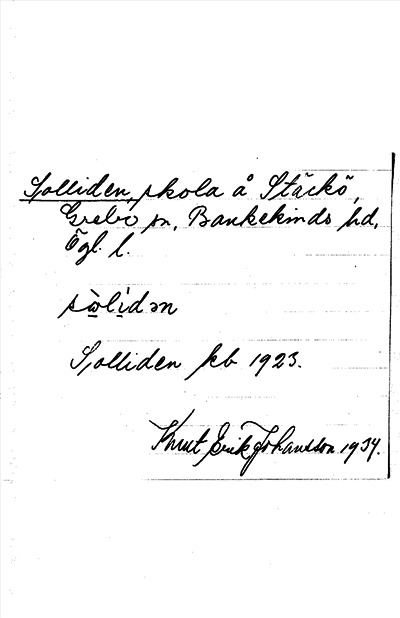 Solliden, skola å Stäckö,
Grebo sn, Bankekinds hd,
Ögl. l.
sòlìdən
Solliden kb 1923.
Knut Erik Johansson 1934.